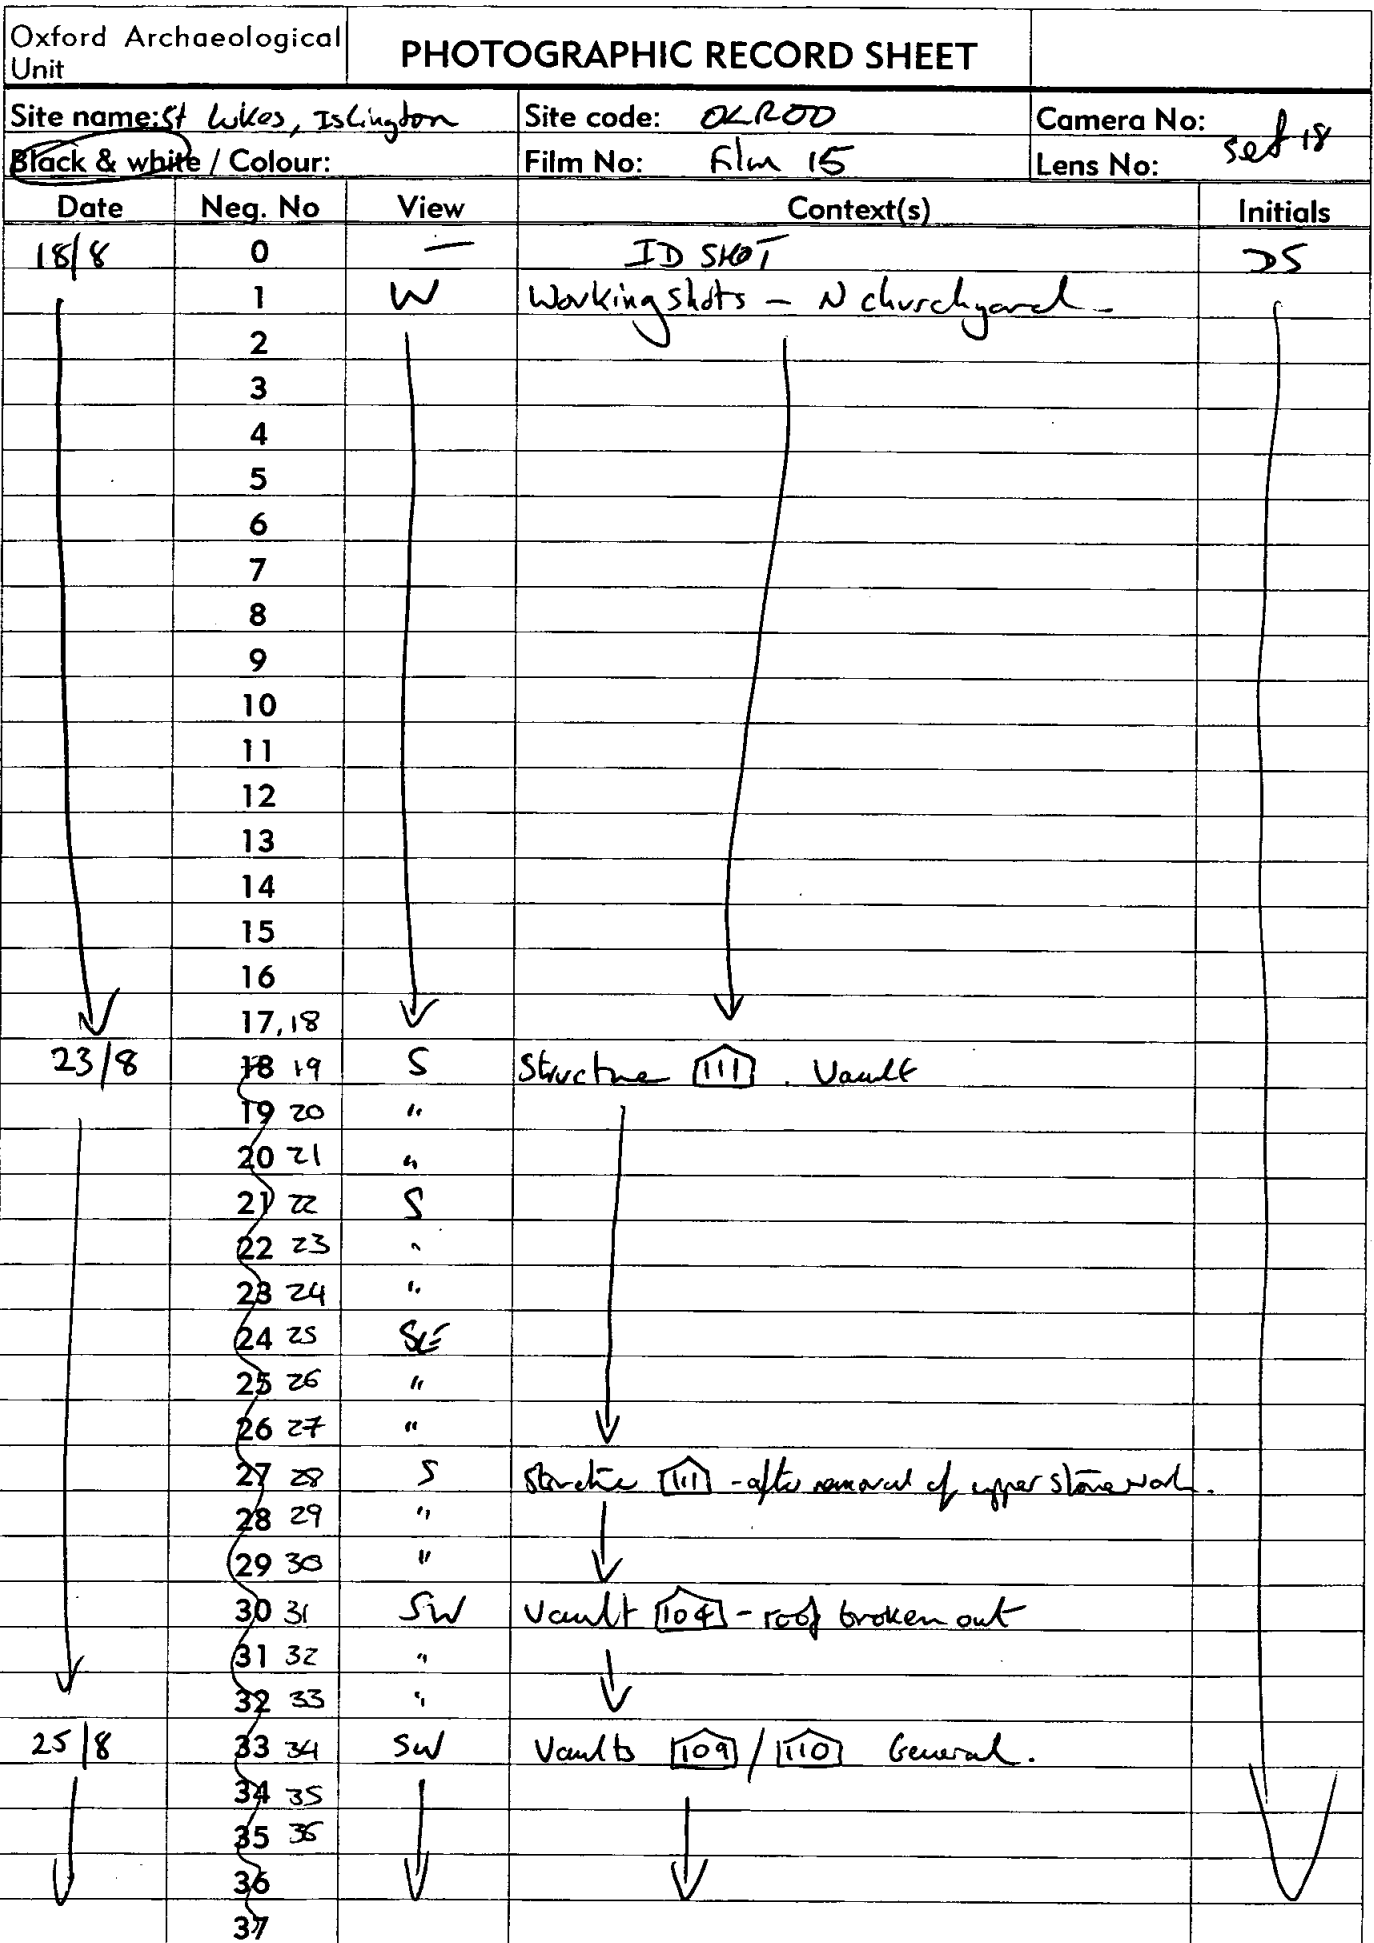 Oxford Archaeological
Unit
PHOTOGRAPHIC RECORD SHEET
Site name: St Lukes, Islington
Site code: OLR00
Camera No:
Black & white / Colour:
Film No: Film 15
Lens No: set 18
Date Neg. No View Context(s) Initials
18/8 0 — ID SHOT DS
1 W Working shots - N churchyard -
2
3
4
5
6
7
8
9
10
11
12
13
14
15
16
17, 18
23/8 18 19 S Structure 111 . Vault
19 20 "
20 21 "
21 22 S
22 23 "
23 24 "
24 25 SE
25 26 "
26 27 "
27 28 S Structure 111 - after removal of upper stonework.
28 29 "
29 30 "
30 31 SW Vault 104 - roof broken out
31 32 "
32 33 "
25/8 33 34 SW Vaults 109 / 110 General.
34 35
35 36
36
37